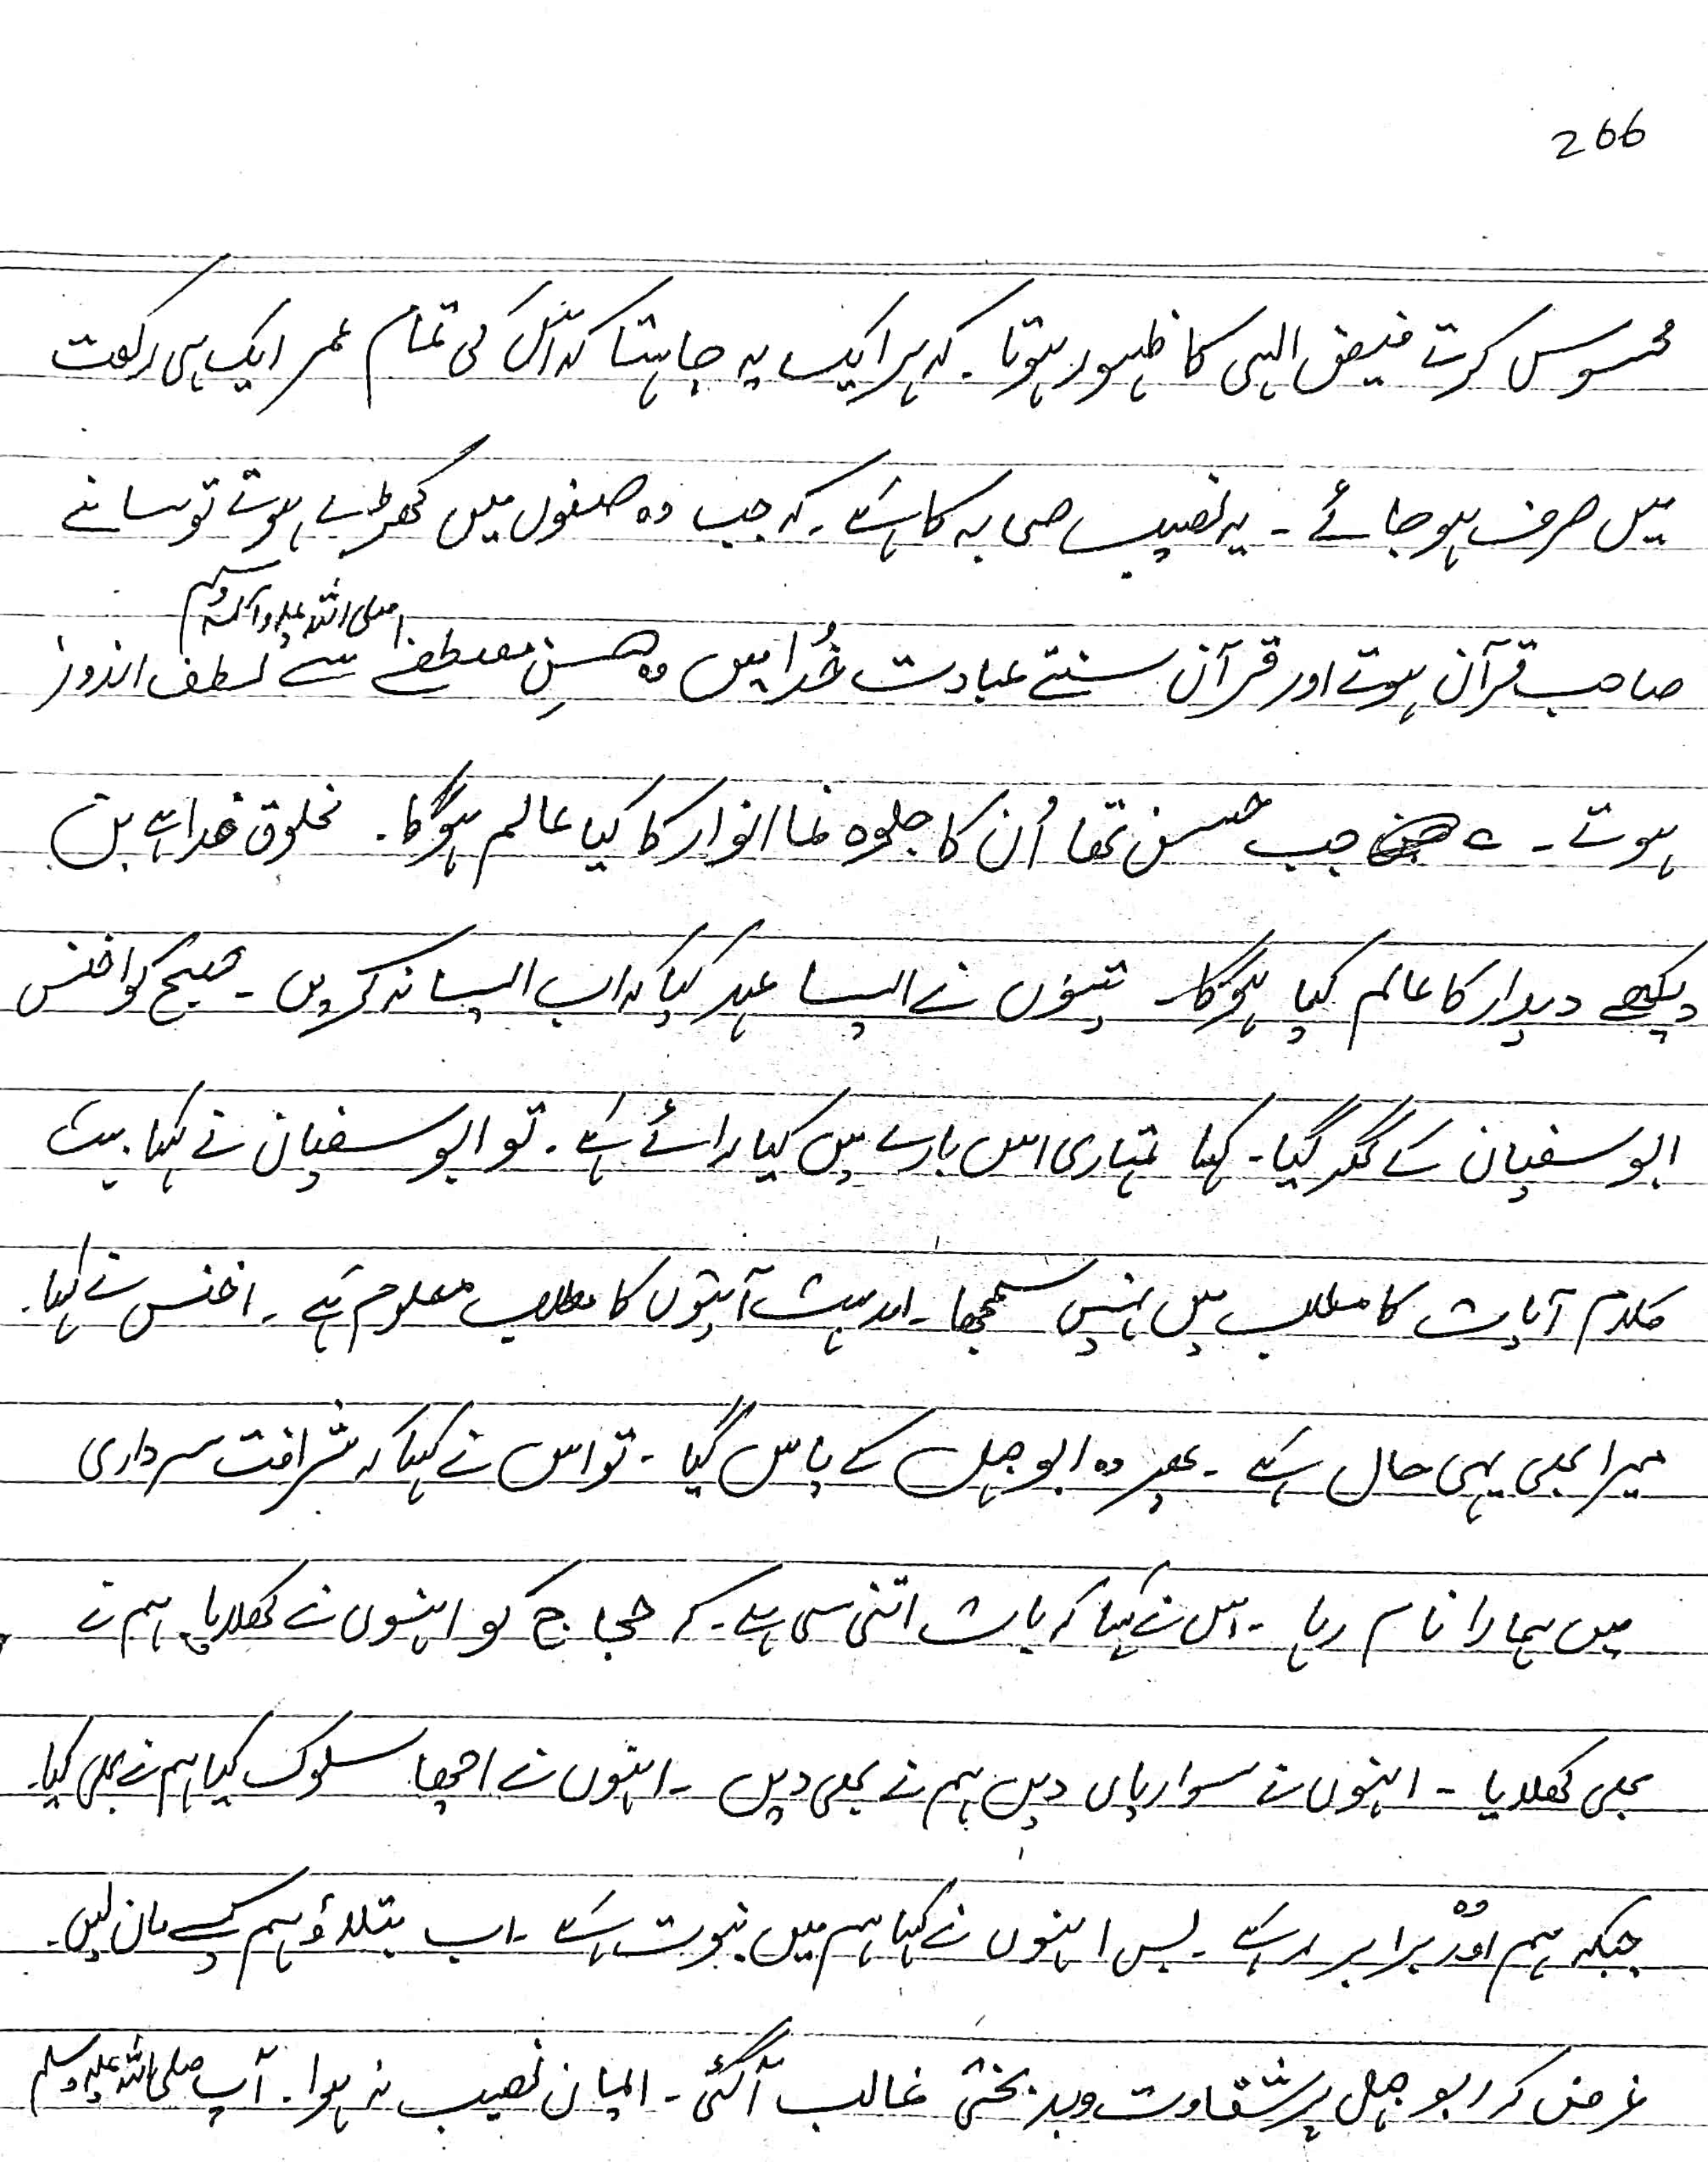 266
محسوس کرتے فیض الہی کا ظہور ہوتا۔ کہ ہر ایک یہ چاہتا کہ اس کی تمام عمر ایک ہی رکعت
میں صرف ہو جائے ۔ یہ نصیب صحابہ کا ہے ۔ کہ جب وہ صفوں میں کھڑے ہوتے تو سامنے
صاحب قرآن ہوتے اور قرآن سنتے عبادت خُدا میں وہ حسنِ مصطفےٰ صلی اللہ علیہ وآلہ وسلم سے لطف اندوز
ہوتے ۔ جب حسن تھا اُن کا جلوہ نما انوار کا کیا عالم ہوگا۔ مخلوق خدا ہے بن
دیکھے دیدار کا عالم کیا ہوگا۔ تینوں نے ایسا عہد کیا کہ اب ایسا نہ کریں ۔ صبح کو اخنس
ابوسفیان کے گھر گیا۔ کہا تمہاری اس بارے میں کیا رائے ہے ۔ تو ابو سفیان نے کہا۔ بہت
کلام آیات کا مطلب میں نہیں سمجھا ۔ اور بہت آیتوں کا مطلب معلوم ہے ۔ اخنس نے کہا۔
میرا بھی یہی حال ہے ۔ پھر وہ ابو جہل کے پاس گیا ۔ تو اس نے کہا کہ شرافت سرداری
میں ہمارا نام رہا ۔ اس نے کہا کہ بات اتنی سی ہے ۔ کہ حجاج کو انہوں نے کھلایا ہم نے
بھی کھلایا ۔ انہوں نے سواریاں دیں ہم نے بھی دیں ۔ انہوں نے اچھا سلوک کیا ہم نے بھی کیا۔
جبکہ ہم اور وہ برابر رہے ۔ بس انہوں نے کہا ہم میں نبوت ہے ۔ اب بتلاؤ ہم کیسے مان لیں۔
غرض کہ ابو جہل پر شقاوت و بدبختی غالب آگئی ۔ ایمان نصیب نہ ہوا۔ آپ صلی اللہ علیہ وسلم